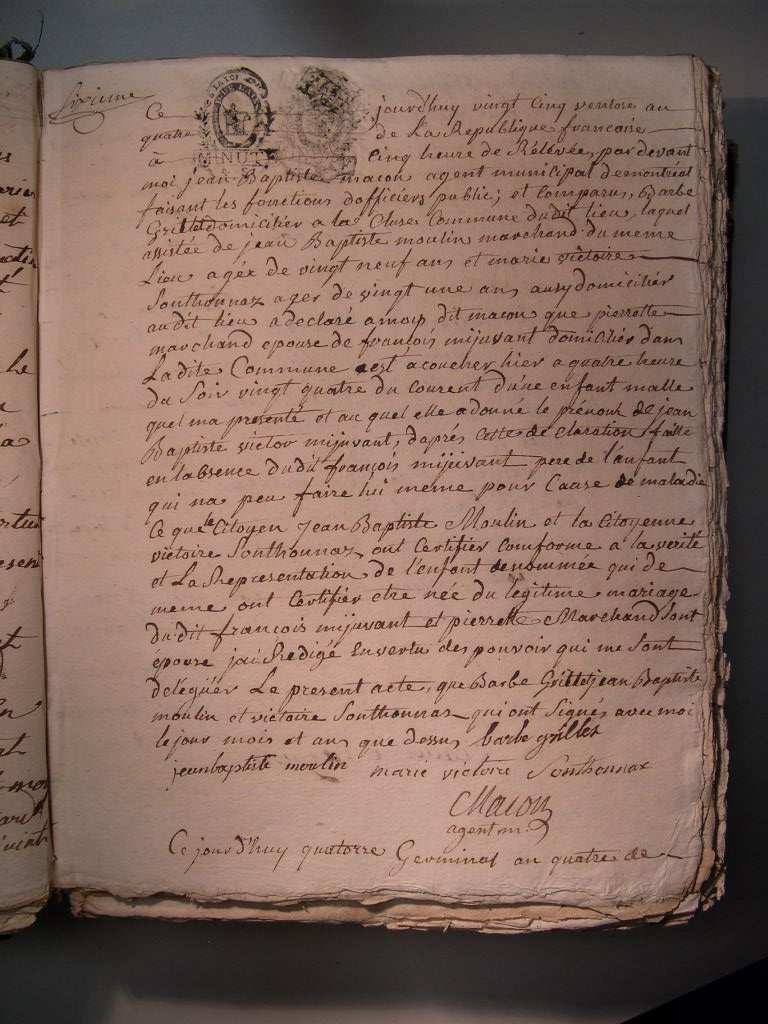 Sixieme
Ce jourd'huy vingt cinq ventose an
quatre de La Republique francoise
à cinq heure de Rélevée, par devant
MINUT
moi jean Baptiste macon agent municipal demontréal
faisant les fonctions dofficiers public; et Comparus, Barbe
Grillet domicilier a la Cluse Commune dudit lieu, laquel
assistée de jean Baptiste moulin marchand du meme
Lieu agée de vingt neuf ans et marie victoire
Sonthonnaz ager de vingt une ans ausy domiciliér
audit lieu a declaré a moy dit macon que pierrette
marchand epouse de françois mijuvant domiciliér dans
La dite Commune est acoucher hier a quatre heure
du Soir vingt quatre du courent d'une enfant malle
quel ma presenté et au quel elle adonné le prénom de jean
Baptiste victor mijuvant, daprés Cette de claration faitte
en labsence dudit françois mijuvant pere de l'anfant
qui na peu faire lui meme pour Cause de maladie
Ce que le Citoyen jean Baptiste Moulin et la Citoyenne
victoire Sonthonnaz, ont Certifier Comforme a la verité
et La Representation de l'enfant denommée qui de
meme ont Certifiér etre née du légitime mariage
dudit françois mijuvant et pierrette Marchand sont
épouse jai Redigé Envertu des pouvoir qui me Sont
deleguér Le present acte, que Barbe Grillet jean Baptiste
moulin et victoire Sonthonnas qui ont Signés avec moi
le jour mois et an que dessus barbe grillet
jean baptiste moulin marie victoire Sonthonnax
Macon
agent m.
Ce jourd'huy quatorze Germinal an quatre de